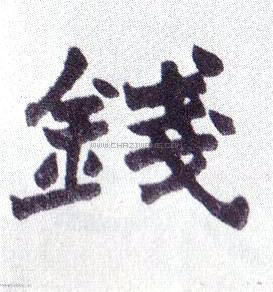 錢
WWW.CHAZIWANG.COM